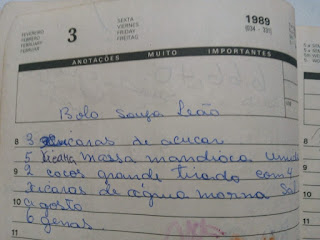 FEVEREIRO
FEBRERO
FEBRUARY
FEBRUAR
3
SEXTA
VIERNES
FRIDAY
FREITAG
1989
(034 - 331)
ANOTAÇÕES MUITO IMPORTANTES
Bolo Souza Leão
8 3 xicaras de açucar
5 xicaras massa mandioca
9 2 cocos grande tirado com 4
xicaras de água morna Sal
10 a gosto
6 gemas
11